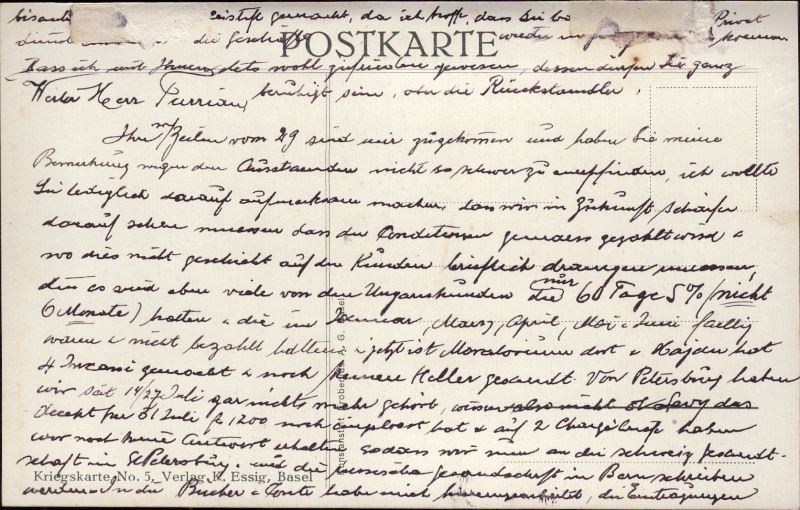 gemacht, da ich hoffe, dass Sie
die Geschäfte wieder Privat
POSTKARTE
Dass ich mit Ihnen stets wohl zufrieden gewesen, dessen dürfen Sie ganz
Werter Herr Purrian, beruhigt sein, aber die Rückstaendler.
Ihre Zeilen vom 29 sind mir zugekommen und haben Sie meine
Bemerkung wegen den Ausstaenden nicht so schwer zu empfinden, ich wollte
Sie lediglich darauf aufmerksam machen, dass wir in Zukunft schärfer
darauf sehen muessen dass den Conditionen gemaess gezahlt wird &
wo dies nicht geschieht auf die Kunden brieflich draengen muessen,
denn es sind eben viele von den Ungarkunden die nur 60 Tage 5% (nicht
6 Monate) hatten & die im Januar, Maerz, April, Mai & Juni faellig
waren & nicht bezahlt hatten & jetzt ist Moratorium dort & Hajdu hat
4 Incassi gemacht & noch keinen Heller gesandt. Von Petersburg haben
wir seit 14/27 Juli gar nichts mehr gehört, wissen also nicht ob Savy das
per 31 Juli 1200 noch hat & auf 2 Chargébriefe haben
wir noch keine Antwort erhalten sodass wir nun an die schweiz gesandt-
schaft in St Petersburg & die russische gesandschaft in Bern schreiben
Kriegskarte No. 5, Verlag K. Essig, Basel
werden. In die Bücher & Conti habe mich hineingearbeitet, die Eintragungen
Kunstanstalt Frobenius A. G. Basel